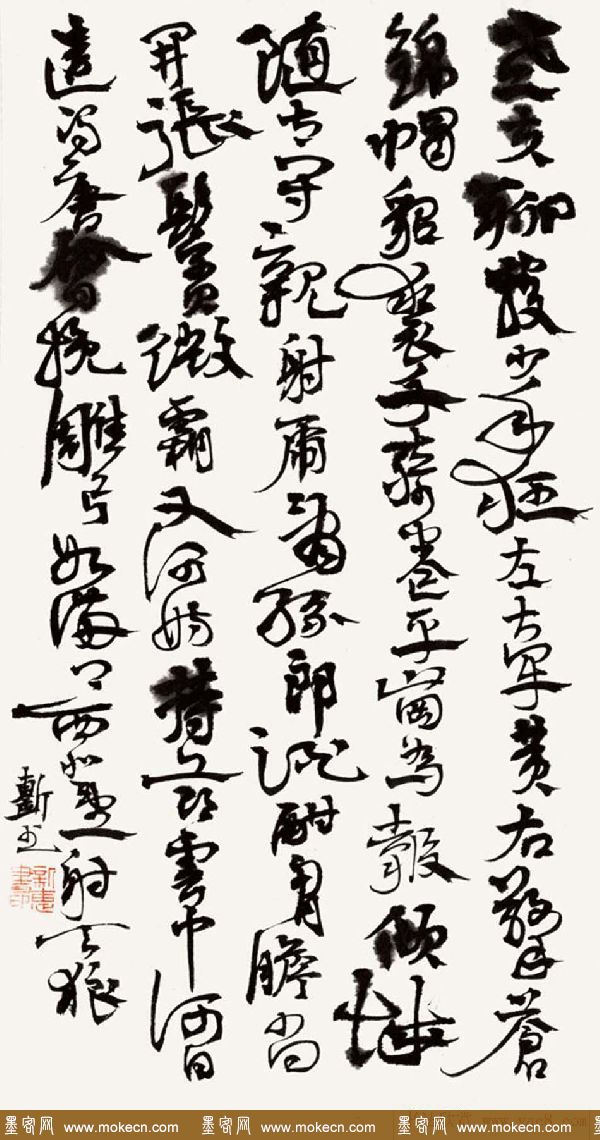 老夫聊發少年狂左牽黃右擎蒼
錦帽貂裘千騎卷平崗為報傾城
隨太守親射虎看孫郎酒酣胸膽尚
開張鬢微霜又何妨持節雲中何日
遣馮唐會挽雕弓如滿月西北望射天狼
墨客网 www.mokecn.com 墨客网 www.mokecn.com 墨客网 www.mokecn.com